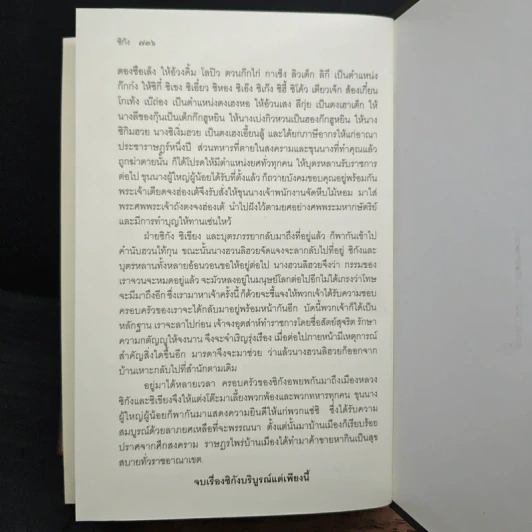 ซิกัง ๗๓๖
ตองซือเล้ง ให้อ้วงคิ้ม โลปิว ตวนก๊กไก่ กาเซ็ง ลิวเต็ก ลิกี่ เป็นตำแหน่ง
ก๊กก๋ง ให้ซิกี่ ซิเซง ซิเอี๋ยว ซิหอง ซิเอ๊ง ซิเก๊ง ซิฮี้ ซิโค้ว เตียวเจ๊ก ส้องเกี่ยน
โกเท้ง เบ๊ถ่อง เป็นตำแหน่งตงเฮงหอ ให้อ้วนเสง ลีกุ่ย เป็นตงเฮาเต็ก ให้
นางลีของกุ๊นเป็นเต็กก๊กฮูหยิน ให้นางเบ่งกิวหวนเป็นฮองก๊กฮูหยิน ให้นาง
ซิกิมฮวย นางซิเงิ่มฮวย เป็นตงเฮงเอี้ยนลู้ และได้ยกภาษีอากรให้แก่อาณา
ประชาราษฎร์หนึ่งปี ส่วนทหารที่ตายในสงครามและขุนนางที่ทำคุณแล้ว
ถูกฆ่าตายนั้น ก็ได้โปรดให้มีตำแหน่งยศทั่วทุกคน ให้บุตรหลานรับราชการ
ต่อไป ขุนนางผู้ใหญ่ผู้น้อยได้รับที่ตั้งแล้ว ก็ถวายบังคมขอบคุณอยู่พร้อมกัน
พระเจ้าเตียดจงฮ่องเต้จึงรับสั่งให้ขุนนางเจ้าพนักงานจัดหีบไม้หอม มาใส่
พระศพพระเจ้าถังตงจงฮ่องเต้ นำไปฝังไว้ตามยศอย่างศพพระมหากษัตริย์
และมีการทำบุญให้ทานเช่นไหว้
ฝ่ายซิกัง ซิเซียง และบุตรภรรยากลับมาถึงที่อยู่แล้ว ก็พากันเข้าไป
คำนับฮวนไท้กุน ขณะนั้นนางฮวนลิฮวยจัดแจงจะลากลับไปที่อยู่ ซิกังและ
บุตรหลานทั้งหลายอ้อนวอนขอให้อยู่ต่อไป นางฮวนลิฮวยจึงว่า กรรมของ
เราจวนจะหมดอยู่แล้ว จะมัวหลงอยู่ในมนุษย์โลกต่อไปอีกไม่ได้เกรงว่าโทษ
จะมีมาถึงอีก ซึ่งเรามาหาเจ้าครั้งนี้ ก็ด้วยจะชี้แจงให้พวกเจ้าได้รับความชอบ
ครอบครัวของเราจะได้กลับมาอยู่พร้อมหน้ากันอีก บัดนี้พวกเจ้าก็ได้เป็น
หลักฐาน เราจะลาไปก่อน เจ้าจงอุตส่าห์ทำราชการโดยซื่อสัตย์สุจริต รักษา
ความกตัญญูให้จงนาน จึงจะจำเริญรุ่งเรือง เมื่อต่อไปภายหน้ามีเหตุการณ์
สำคัญสิ่งใดขึ้นอีก มารดาจึงจะมาช่วย ว่าแล้วนางฮวนลิฮวยก็ออกจาก
บ้านเหาะกลับไปที่สำนักตามเดิม
อยู่มาได้หลายเวลา ครอบครัวของซิกังอพยพกันมาถึงเมืองหลวง
ซิกังและซิเซียงจึงให้แต่งโต๊ะมาเลี้ยงพวกพ้องและพวกทหารทุกคน ขุนนาง
ผู้ใหญ่ผู้น้อยก็พากันมาแสดงความยินดีให้แก่พวกแซ่ซิ ซึ่งได้รับความ
สมบูรณ์ด้วยลาภยศเหลือที่จะพรรณนา ตั้งแต่นั้นมาบ้านเมืองก็เรียบร้อย
ปราศจากศึกสงคราม ราษฎรไพร่บ้านเมืองได้ทำมาค้าขายหากินเป็นสุข
สบายทั่วราชอาณาเขต.
จบเรื่องซิกังบริบูรณ์แต่เพียงนี้